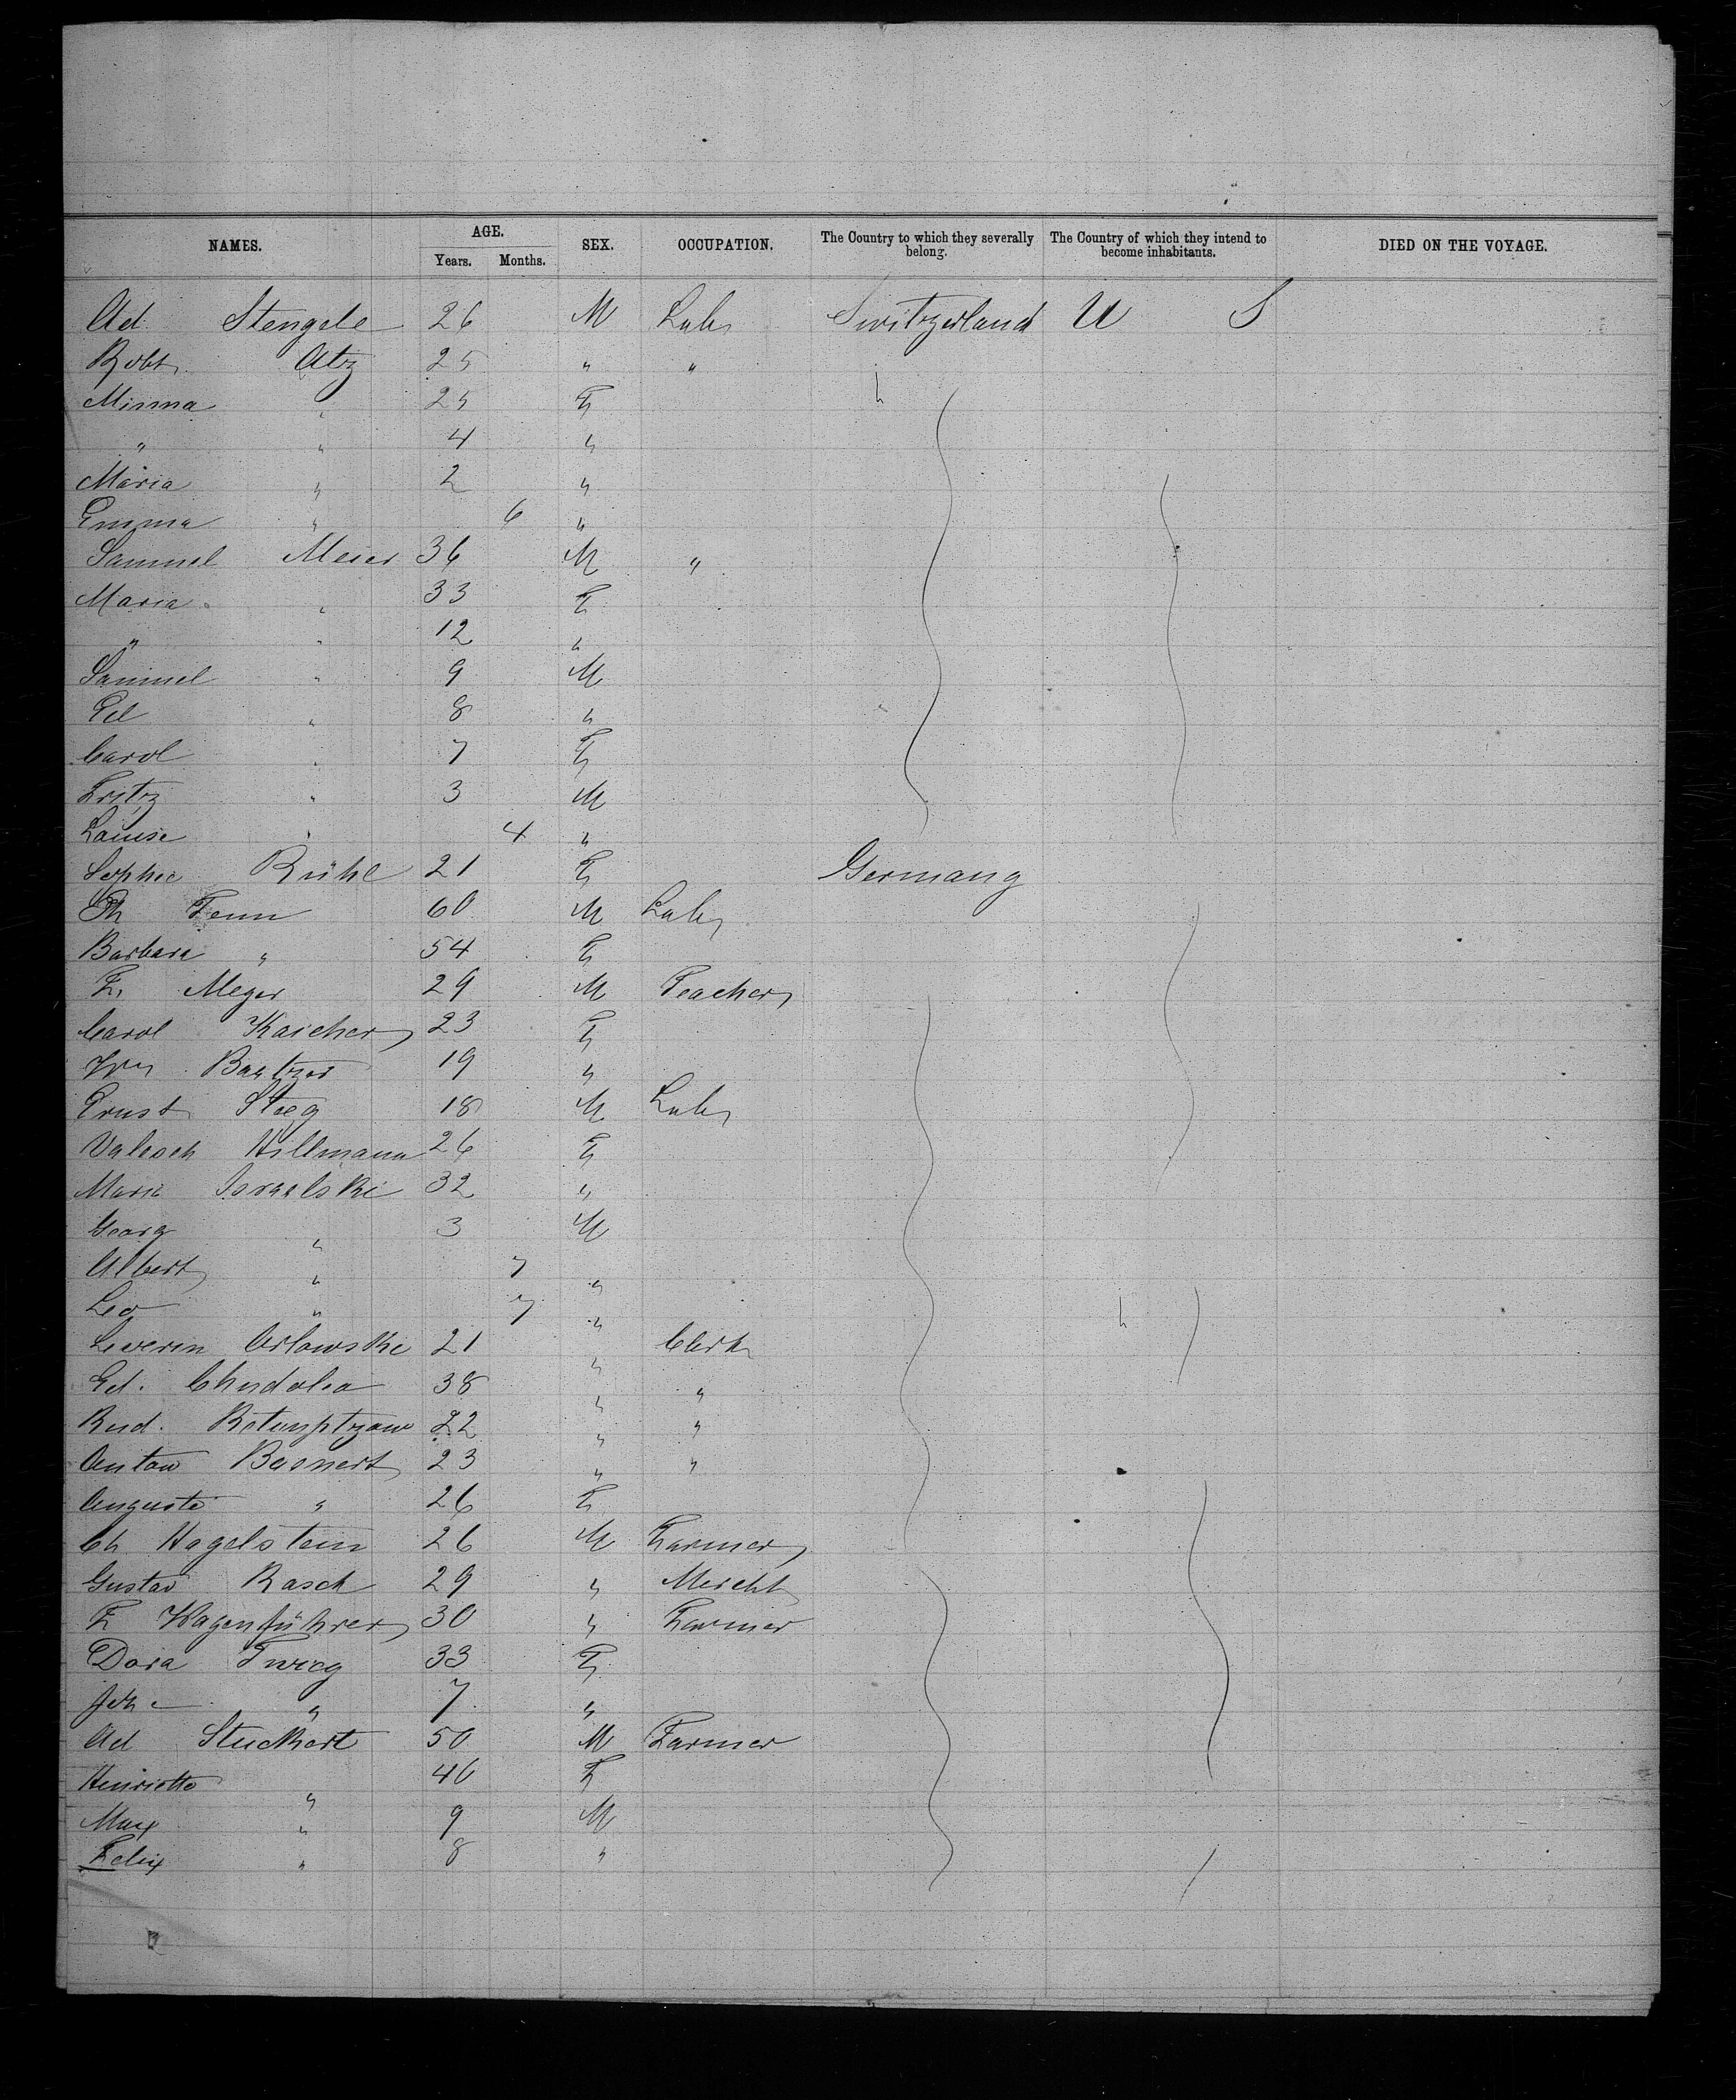 NAMES. AGE. SEX. OCCUPATION. The Country to which they severally belong. The Country of which they intend to become inhabitants. DIED ON THE VOYAGE.
Years. Months.
Ad. Stengele 26 M Lab Switzerland U S
Robt. Atz 25 " " "
Minna " 25 F
" " 4 "
Maria " 2 "
Emma " 6 "
Samuel Meier 36 M "
Maria " 33 F
" " 12 "
Samuel " 9 M
Ed " 8 "
Carol " 7 F
Fritz " 3 M
Louise " 4 "
Sophie Rühl 21 F Germany
Ph Fenn 60 M Lab
Barbara " 54 F
F. Meyer 29 M Teacher
Carol Kaicher 23 F
Wm Baltzer 19 "
Ernst Steeg 18 M Lab
Valesch Hillmann 26 F
Maria Israelski 32 "
Georg " 3 M
Albert " 7 "
Leo " 7 " "
Severin Orlowski 21 " Clerk
Ed. Chudoba 38 " "
Rud. 22 " "
Anton Basnert 23 " "
Auguste " 26 F
Ch Hagelstein 26 M Farmer
Gustav Rasch 29 " Mercht
F Hagenführer 30 " Farmer
Dora Twieg 33 F
" 7 "
Ad Stuckert 50 M Farmer
Henriette " 40 F
Max " 9 M
Felix " 8 "